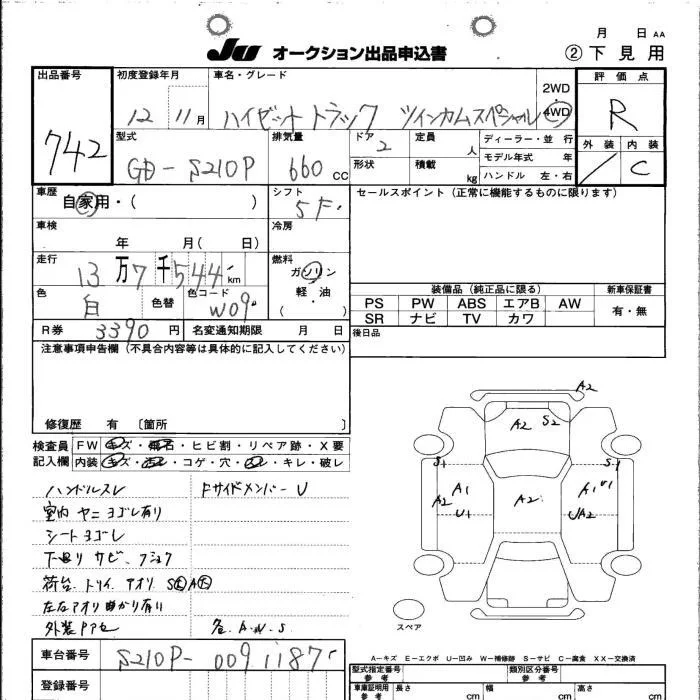 月 日 AA
JU オークション出品申込書 ② 下見用
出品番号 初度登録年月 車名・グレード 2WD 評価点
742 12 11月 ハイゼット トラック ツインカムスペシャル 4WD R
型式 排気量 ドア 定員 ディーラー・並行 外装 内装
GD-S210P 660 CC 2 人 モデル年式 年 / C
形状 積載 kg ハンドル 左・右
車歴 シフト セールスポイント(正常に機能するものに限ります)
自家用・( ) 5F・
車検 冷房
年 月( 日)
走行 燃料
13万7千544km ガソリン
色 色替 色コード 軽・油
白 W09 ( )
装備品(純正品に限る) 新車保証書
PS PW ABS エアB AW 有・無
SR ナビ TV カワ
R券 3390円 名変通知期限 月 日 後日品
注意事項申告欄(不具合内容等は具体的に記入してください)
修復歴 有 〔箇所 〕
検査員 FW キズ・飛石・ヒビ割・リペア跡・X要
記入欄 内装 キズ・・コゲ・穴・・キレ・破レ
ハンドルスレ Fサイドメンバー U
室内 ヤニ ヨゴレ有り
シート ヨゴレ
下回り サビ、フショク
荷台 トリイ アオリ
左右アオリ 曲がり有り
外装 キズ A.W.S
A2
A2 S2
S1 S1
A1 A2 A1 U1
A2 U1 UA2
スペア
A-キズ E-エクボ U-凹み W-補修跡 S-サビ C-腐食 XX-交換済
車台番号 S210P-0091187
登録番号
型式指定番号 参考 類別区分番号 参考
車庫証明用 参考 長さ cm 幅 cm 高さ cm